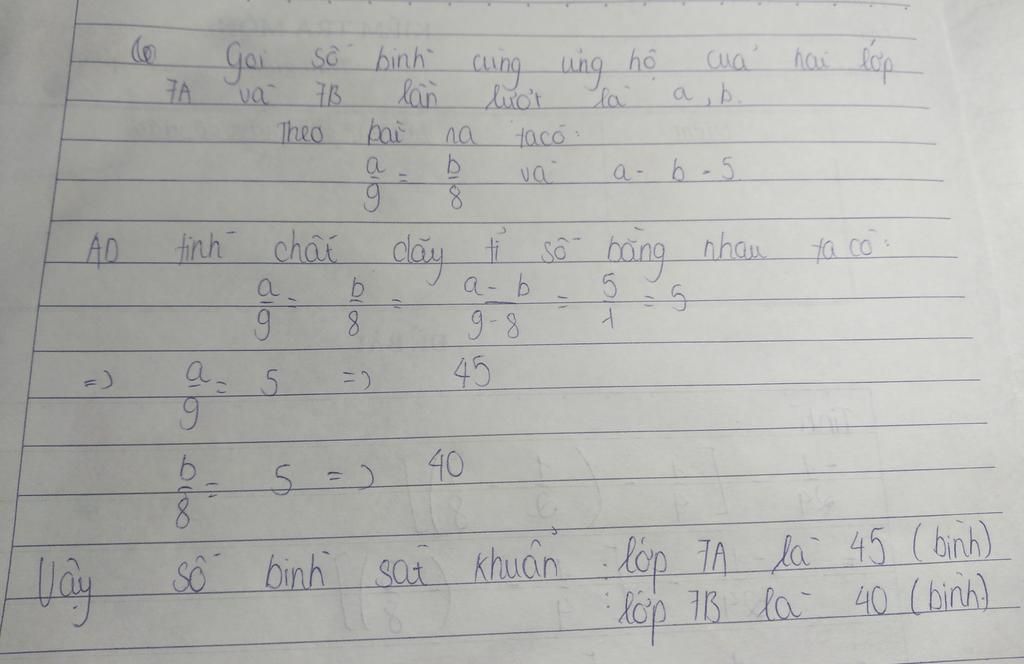 Gọi số bình cùng ủng hộ của hai lớp
7A và 7B lần lượt là a, b.
Theo bài ra ta có:
a/9 = b/8 và a - b = 5
AD tính chất dãy tỉ số bằng nhau ta có:
a/9 = b/8 = a - b/9 - 8 = 5/1 = 5
=> a/9 = 5 => 45
b/8 = 5 => 40
Vậy số bình sát khuẩn : lớp 7A là 45 (bình)
: lớp 7B là 40 (bình)